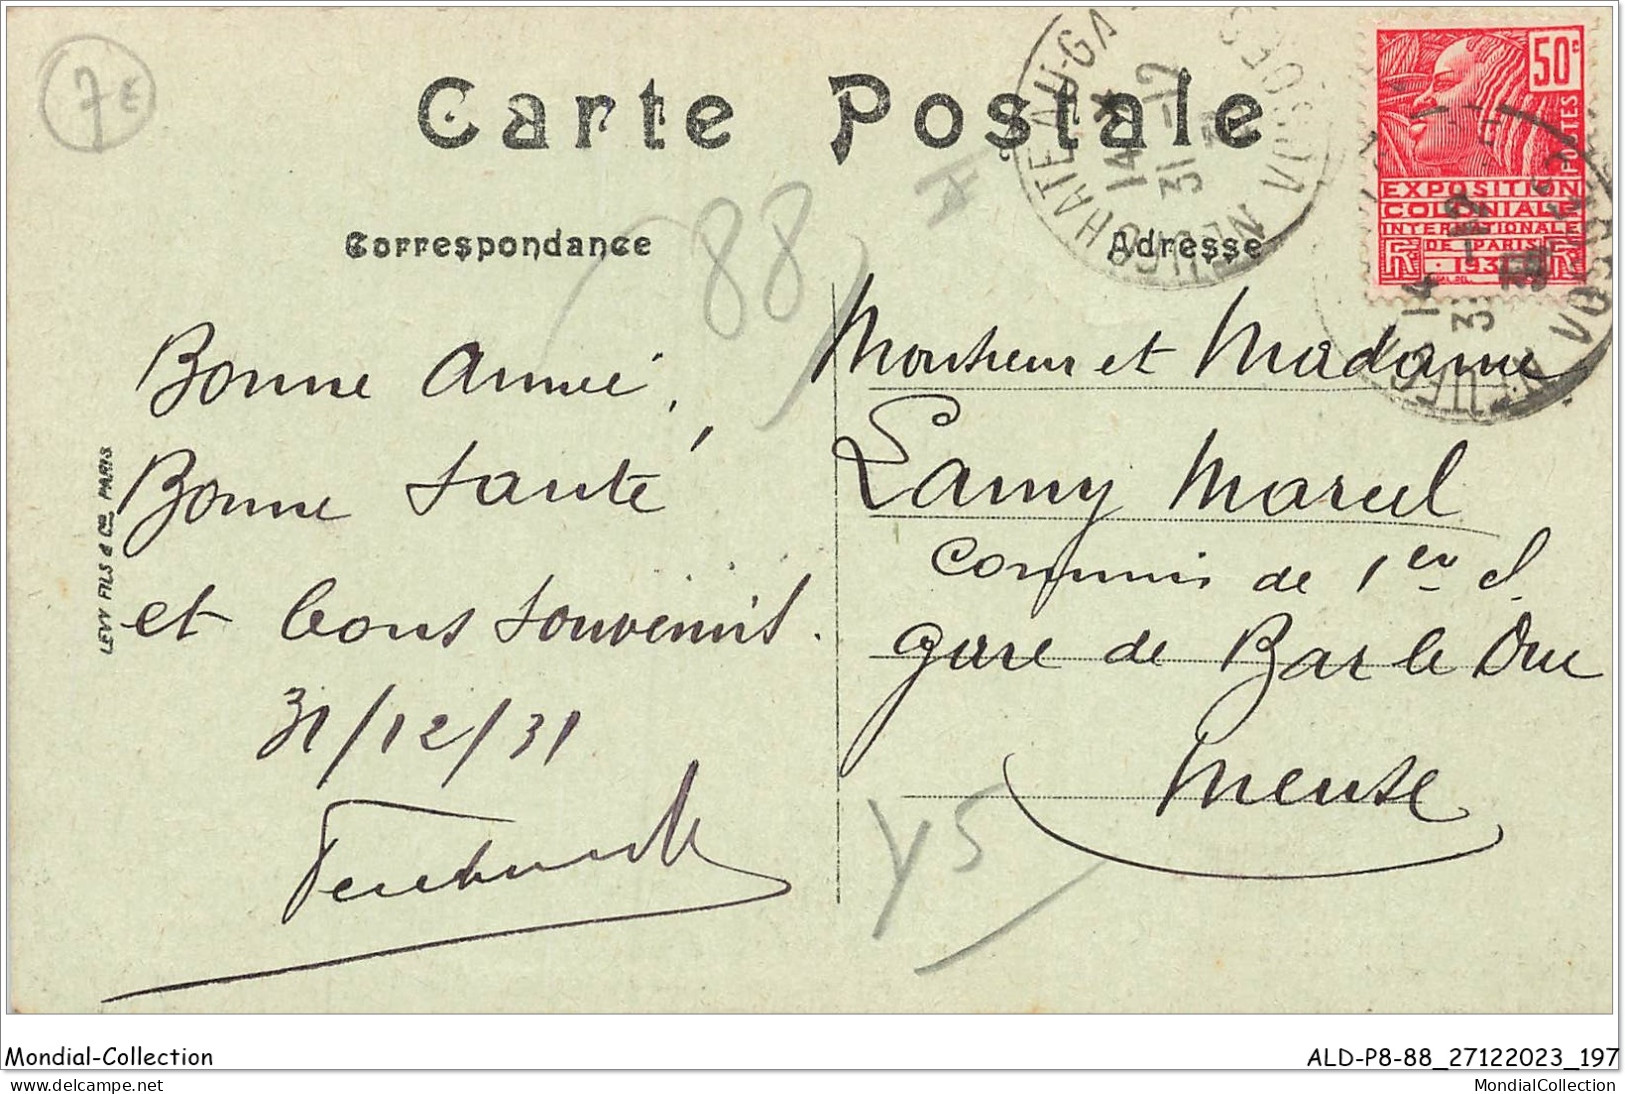 7E
Carte Postale
Correspondance
Adresse
88
NEUFCHATEAU-GARE
VOSGES
14
31 -12
31
50c
POSTES
EXPOSITION
COLONIALE
INTERNATIONALE
DE PARIS
RF 1931 RF
Bonne Année,
Bonne Santé,
et bons souvenirs.
31/12/31
Monsieur et Madame
Lamy Marcel
Commis de 1er cl.
gare de Bar le Duc
Meuse
45
LEVY FILS & Cie, PARIS
Mondial-Collection
ALD-P8-88_27122023_197
MondialCollection